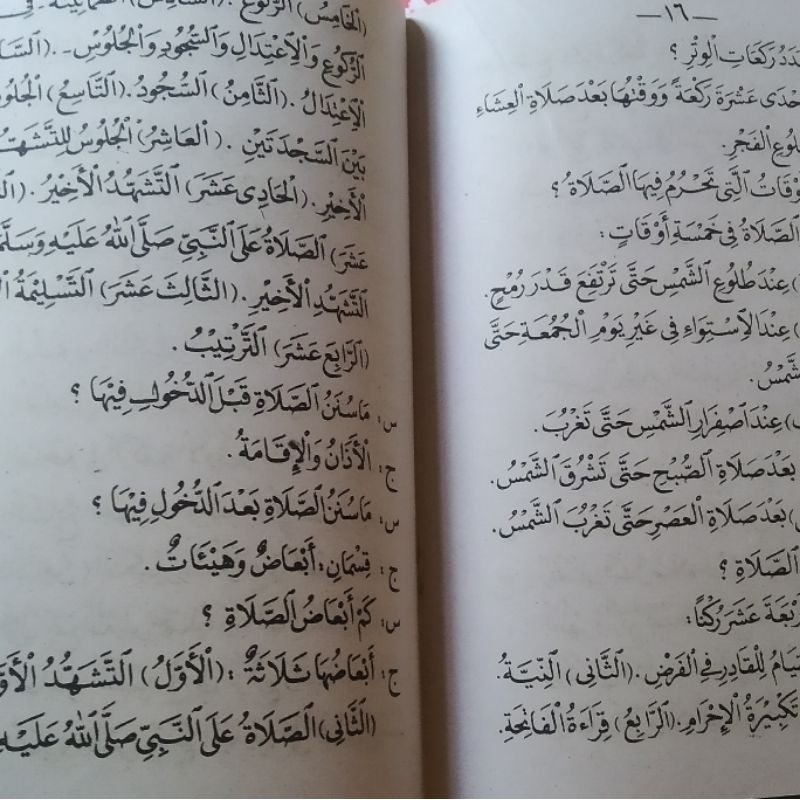 —١٦—
عَدَدُ رَكَعَاتِ الْوِتْرِ ؟
حْدَى عَشْرَةَ رَكْعَةً وَوَقْتُهَا بَعْدَ صَلَاةِ الْعِشَاءِ
لُوعِ الْفَجْرِ.
وْقَاتُ الَّتِى تَحْرُمُ فِيهَا الصَّلَاةُ ؟
الصَّلَاةُ فِى خَمْسَةِ أَوْقَاتٍ :
) عِنْدَ طُلُوعِ الشَّمْسِ حَتَّى تَرْتَفِعَ قَدْرَ رُمْحٍ.
) عِنْدَ الْاِسْتِوَاءِ فِى غَيْرِ يَوْمِ الْجُمُعَةِ حَتَّى
شَّمْسُ.
) عِنْدَ اصْفِرَارِ الشَّمْسِ حَتَّى تَغْرُبَ.
بَعْدَ صَلَاةِ الصُّبْحِ حَتَّى تَشْرُقَ الشَّمْسُ.
) بَعْدَ صَلَاةِ الْعَصْرِ حَتَّى تَغْرُبَ الشَّمْسُ.
الصَّلَاةِ ؟
رْبَعَةَ عَشَرَ رُكْنًا :
قِيَامُ لِلْقَادِرِ فِى الْفَرْضِ. (الثَّانِى) النِّيَّةُ.
تَكْبِيْرَةُ الْإِحْرَامِ. (الرَّابِعُ) قِرَاءَةُ الْفَاتِحَةِ.
(الْخَامِسُ) الرُّكُوعُ. (السَّادِسُ) الطُّمَأْنِيْنَةُ فِى
الرُّكُوعِ وَالْاِعْتِدَالِ وَالسُّجُودِ وَالْجُلُوسِ. (السَّا
الْاِعْتِدَالُ. (الثَّامِنُ) السُّجُودُ. (التَّاسِعُ) الْجُلُو
بَيْنَ السَّجْدَتَيْنِ. (الْعَاشِرُ) الْجُلُوسُ لِلتَّشَهُّ
الْأَخِيْرِ. (الْحَادِى عَشَرَ) التَّشَهُّدُ الْأَخِيْرُ. (ال
عَشَرَ) الصَّلَاةُ عَلَى النَّبِيِّ صَلَّى اللهُ عَلَيْهِ وَسَلَّمَ
التَّشَهُّدِ الْأَخِيْرِ. (الثَّالِثَ عَشَرَ) التَّسْلِيْمَةُ ا
(الرَّابِعَ عَشَرَ) التَّرْتِيْبُ.
س: مَا سُنَنُ الصَّلَاةِ قَبْلَ الدُّخُولِ فِيْهَا ؟
ج: الْأَذَانُ وَالْإِقَامَةُ.
س: مَا سُنَنُ الصَّلَاةِ بَعْدَ الدُّخُولِ فِيْهَا ؟
ج: قِسْمَانِ: أَبْعَاضٌ وَهَيْئَاتٌ.
س: كَمْ أَبْعَاضُ الصَّلَاةِ ؟
ج: أَبْعَاضُهَا ثَلَاثَةٌ: (الْأَوَّلُ) التَّشَهُّدُ الْأَوَّ
(الثَّانِى) الصَّلَاةُ عَلَى النَّبِيِّ صَلَّى اللهُ عَلَيْهِ